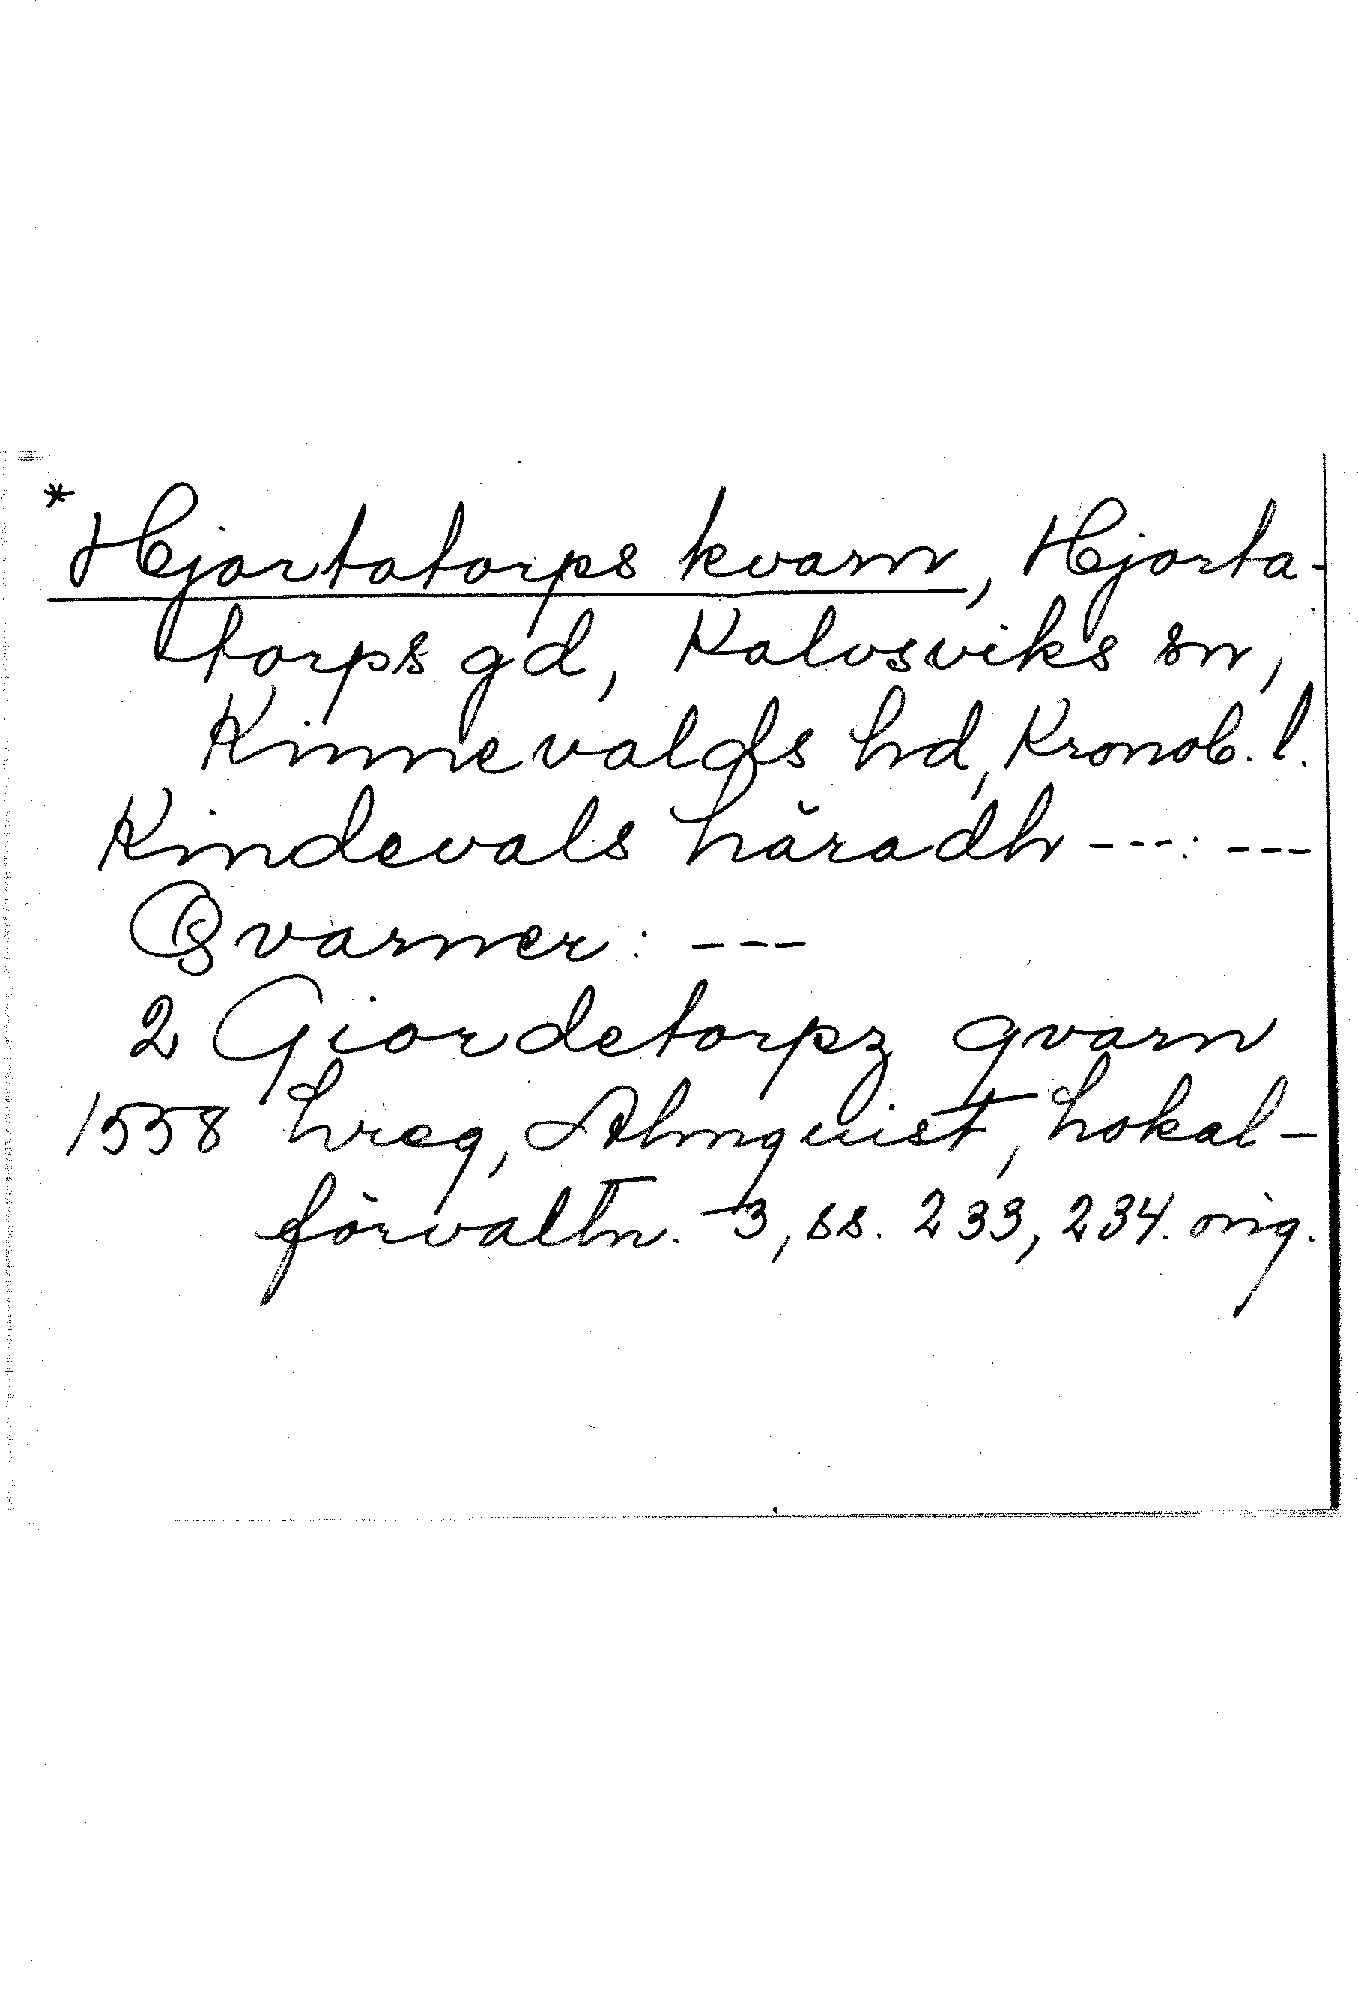 *Hjortatorps kvarn, Hjorta-
torps gd, Kalvsviks sn,
Kinnevalds hd, Kronob. l.
Kindevals häradh ---: ---
Qvarner: ---
2 Giordetorpz qvarn
1558 hreg, Almquist, Lokal-
förvaltn. 3, ss. 233, 234. orig.